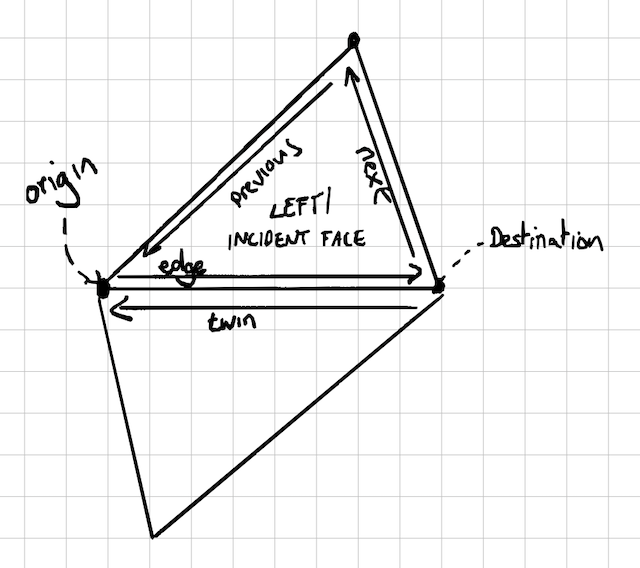 origin
previous
next
LEFT/
INCIDENT FACE
edge
Destination
twin